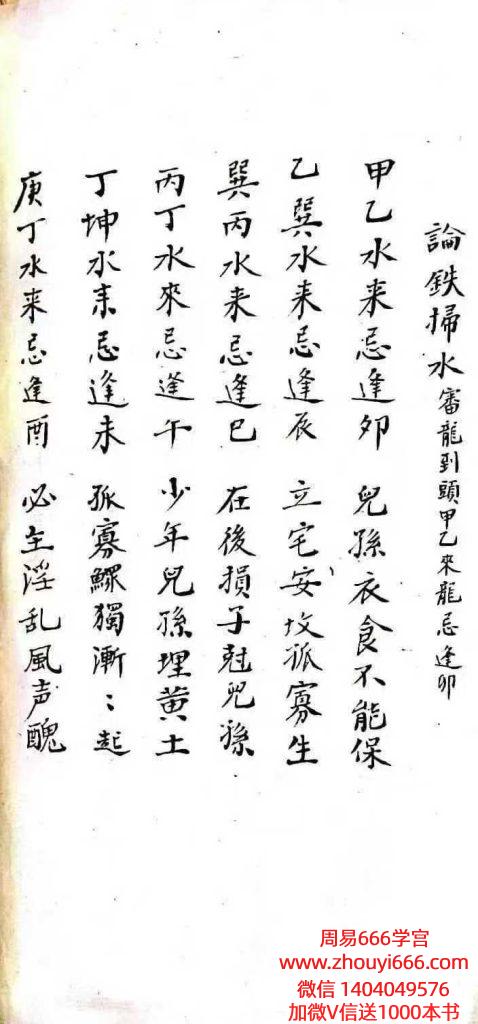 論鉄掃水審龍到頭甲乙來龍忌逢卯
甲乙水来忌逢卯 兒孫衣食不能保
乙巽水来忌逢辰 立宅安坟孤寡生
巽丙水来忌逢巳 在後損子尅兒孫
丙丁水來忌逢午 少年兒孫埋黄土
丁坤水来忌逢未 孤寡鰥獨漸：起
庚丁水来忌逢酉 必主淫乱風声醜
周易666学宫
www.zhouyi666.com
微信 1404049576
加微V信送1000本书